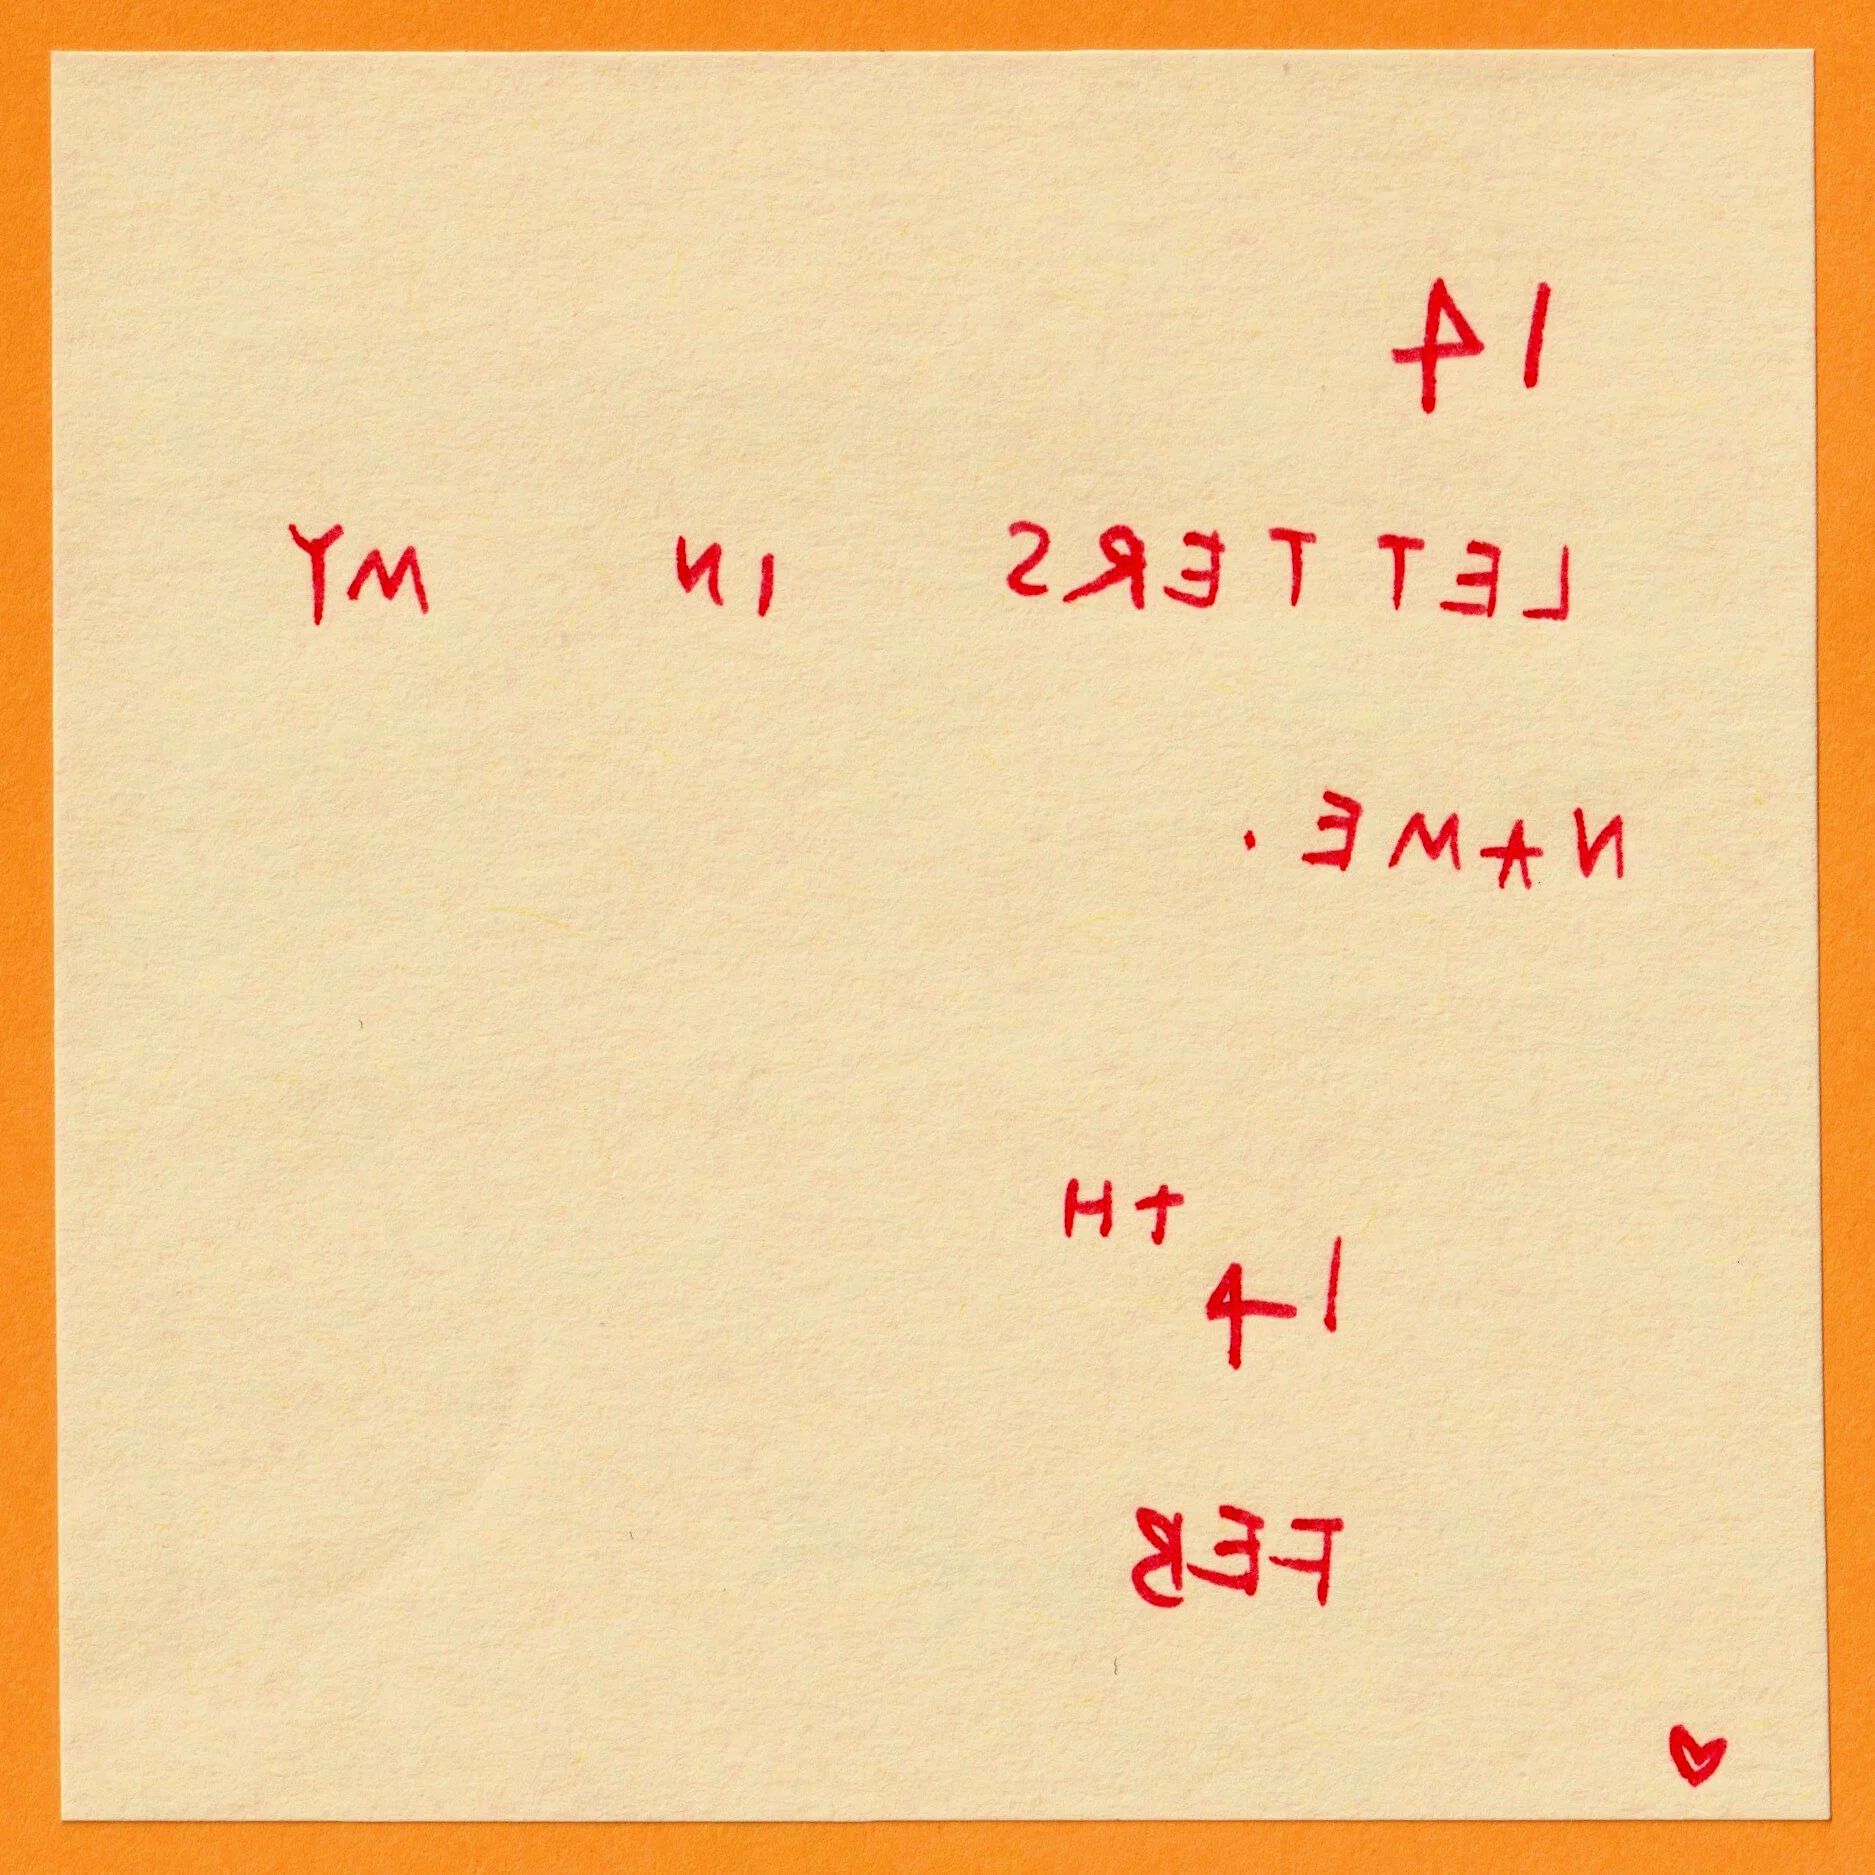 14
LETTERS IN MY
NAME.
14TH
FEB